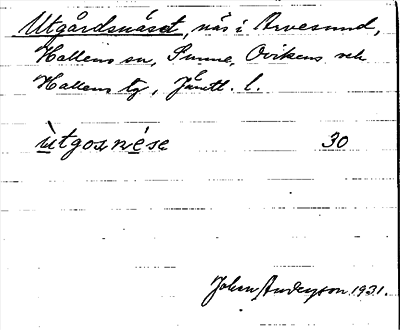 Utgårdsnäset, näs i Arvesund,
Hallens sn, Sunne, Ovikens och
Hallens tg, Jämtl. l.
ùtgoṣnése 30
Johan Anderson 1931.